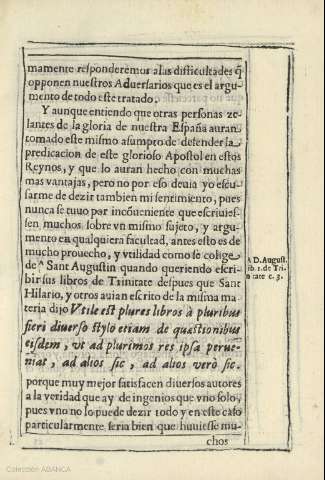 mamente responderemos a las dificultades q̃
opponen nuestros Aduersarios que es el argu-
mento de todo este tratado.
Y aunque entiendo que otras personas ze-
lantes de la gloria de nuestra España auran
tomado este mismo asumpto de defender la
predicacion de este glorioso Apostol en estos
Reynos, y que lo auran hecho con muchas
mas vantajas, pero no por eso deuia yo escu-
sarme de dezir tambien mi sentimiento, pues
nunca se tuuo por incõueniente que escriuies-
sen muchos sobre vn mismo sujeto, y argu-
mento en qualquiera facultad, antes esto es de
mucho prouecho, y vtilidad como se colige
de ᴬ Sant Augustin quando queriendo escri-
bir sus libros de Trinitate despues que Sant
Hilario, y otros auian escrito de la misma ma
teria dijo Vtile est plures libros à pluribus
fieri diuerso stylo etiam de quæstionibus
eisdem, vt ad plurimos res ipsa perue-
niat, ad alios sic, ad alios verò sic.
porque muy mejor satisfacen diuersos autores
a la veridad que ay de ingenios que vno solo,
pues vno no lo puede dezir todo y en este caso
particularmente seria bien que huuiesse mu-
chos
A D. August.
lib. 1. de Tri-
nitate c. 3.
Colección ABANCA